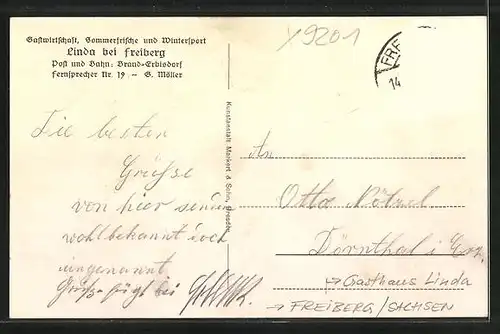 Gastwirtschaft, Sommerfrische und Wintersport
Linda bei Freiberg
Post und Bahn: Brand-Erbisdorf
Fernsprecher Nr. 19 – G. Möller
x9201
FRE
14
Die besten
Grüsse
von hier
wohlbekannt doch
ungenannt
Kunstanstalt Markert & Sohn, Dresden
An
Otto Nötzel
Dörnthal i Erzg.
→ Gasthaus Linda
→ FREIBERG/SACHSEN